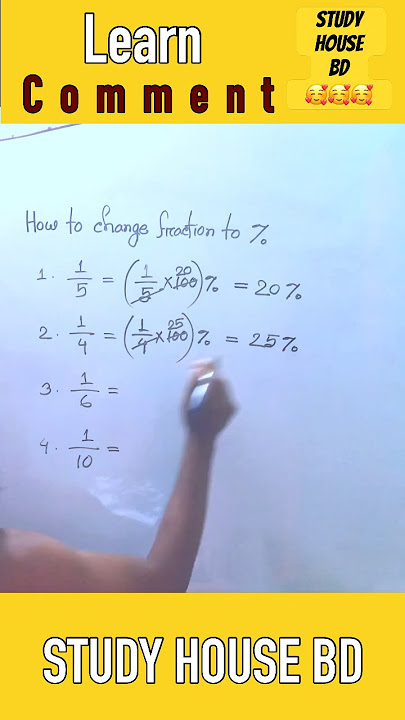 Learn
Comment
STUDY
HOUSE
BD
🥰🥰🥰
How to change fraction to %
1. 1/5 = (1/5 × 100 20)% = 20%
2. 1/4 = (1/4 × 100 25)% = 25%
3. 1/6 =
4. 1/10 =
STUDY HOUSE BD